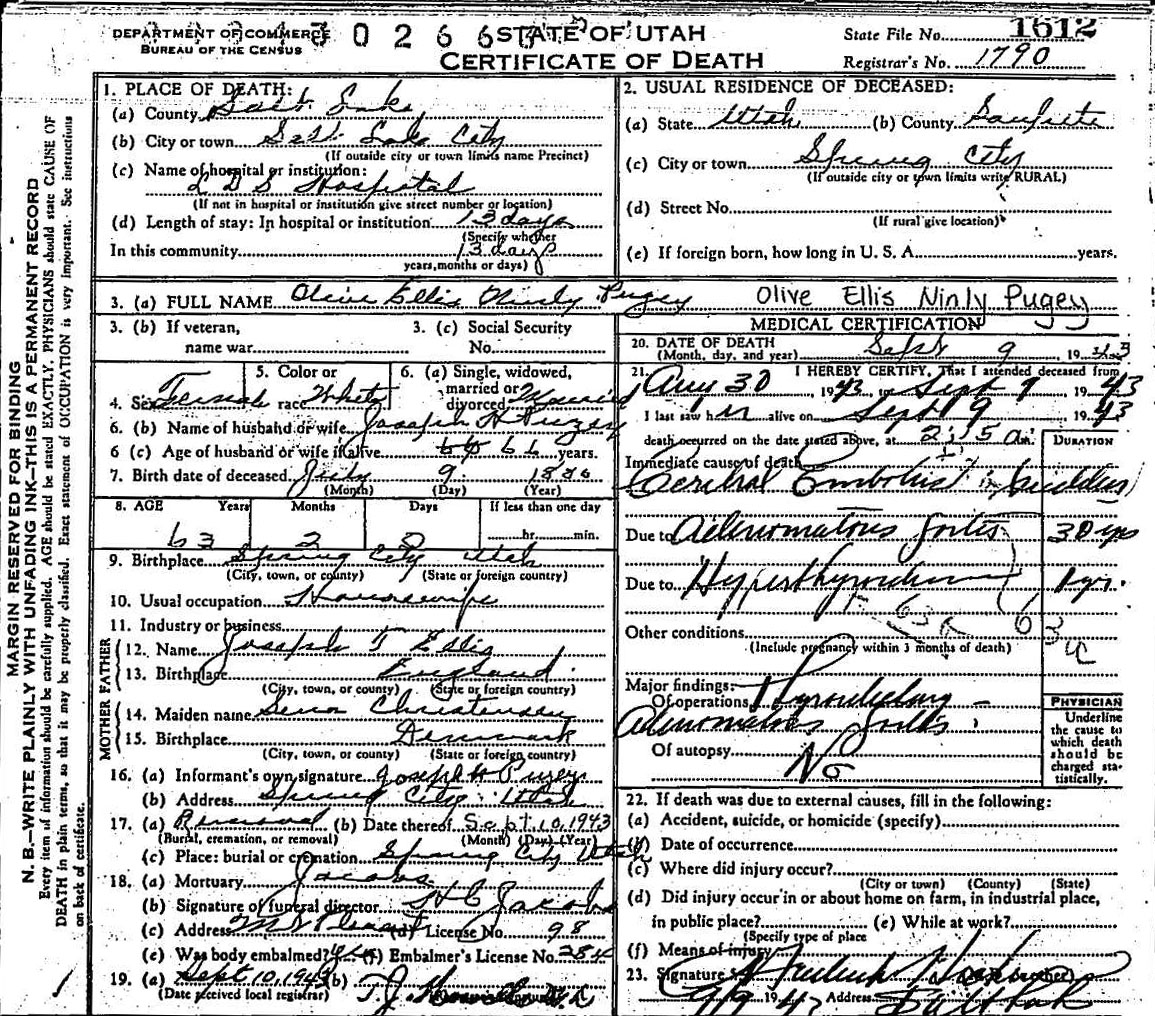 DEPARTMENT OF COMMERCE
BUREAU OF THE CENSUS
STATE OF UTAH
CERTIFICATE OF DEATH
State File No. 1612
Registrar's No. 1790
MARGIN RESERVED FOR BINDING
N. B.—WRITE PLAINLY WITH UNFADING INK—THIS IS A PERMANENT RECORD
Every item of information should be carefully supplied. AGE should be stated EXACTLY. PHYSICIANS should state CAUSE OF
DEATH in plain terms, so that it may be properly classified. Exact statement of OCCUPATION is very important. See instructions
on back of certificate.
1. PLACE OF DEATH:
(a) County Salt Lake
(b) City or town Salt Lake City
(If outside city or town limits name Precinct)
(c) Name of hospital or institution:
L D S Hospital
(If not in hospital or institution give street number or location)
(d) Length of stay: In hospital or institution 13 days
(Specify whether
In this community 13 days
years, months or days)
2. USUAL RESIDENCE OF DECEASED:
(a) State Utah (b) County Sanpete
(c) City or town Spring City
(If outside city or town limits write RURAL)
(d) Street No.
(If rural give location)
(e) If foreign born, how long in U. S. A. years.
3. (a) FULL NAME Olive Ellis Ninly Pugey Olive Ellis Ninly Pugey
3. (b) If veteran,
name war
3. (c) Social Security
No.
4. Sex Female
5. Color or
race White
6. (a) Single, widowed,
married or
divorced Married
6. (b) Name of husband or wife Joseph H
6 (c) Age of husband or wife if alive 66 years.
7. Birth date of deceased July 9 18
(Month) (Day) (Year)
8. AGE Years Months Days If less than one day
63 2 0 hr. min.
9. Birthplace Spring City Utah
(City, town, or county) (State or foreign country)
10. Usual occupation Housewife
11. Industry or business
FATHER
12. Name Joseph T Ellis
13. Birthplace England
(City, town, or county) (State or foreign country)
MOTHER
14. Maiden name Sena Christensen
15. Birthplace Denmark
(City, town, or county) (State or foreign country)
16. (a) Informant's own signature Joseph H Puzey
(b) Address Spring City Utah
17. (a) Removal (b) Date thereof Sept 10, 1943
(Burial, cremation, or removal) (Month) (Day) (Year)
(c) Place: burial or cremation Spring City Utah
18. (a) Mortuary Jacobs
(b) Signature of funeral director H C Jacobs
(c) Address Mt Pleasant (d) License No. 98
(e) Was body embalmed? (f) Embalmer's License No.
19. (a) Sept 10, 1943 (b) T. J.
(Date received local registrar)
MEDICAL CERTIFICATION
20. DATE OF DEATH
(Month, day, and year) Sept 9, 1943
21. I HEREBY CERTIFY, That I attended deceased from
Aug 30 1943 to Sept 9 1943
I last saw her alive on Sept 9 1943
death occurred on the date stated above, at 2:15 a m.
DURATION
Immediate cause of death
(sudden)
Due to Adenomatous 30 yrs
Due to Hyperthyroidism 1 yr.
63
Other conditions
(Include pregnancy within 3 months of death)
Major findings:
Of operations
Adenomatous
Of autopsy No
PHYSICIAN
Underline
the cause to
which death
should be
charged sta-
tistically.
22. If death was due to external causes, fill in the following:
(a) Accident, suicide, or homicide (specify)
(b) Date of occurrence
(c) Where did injury occur?
(City or town) (County) (State)
(d) Did injury occur in or about home on farm, in industrial place,
in public place? (e) While at work?
(Specify type of place
(f) Means of injury
23. Signature
9/9 1943 Address Salt Lake